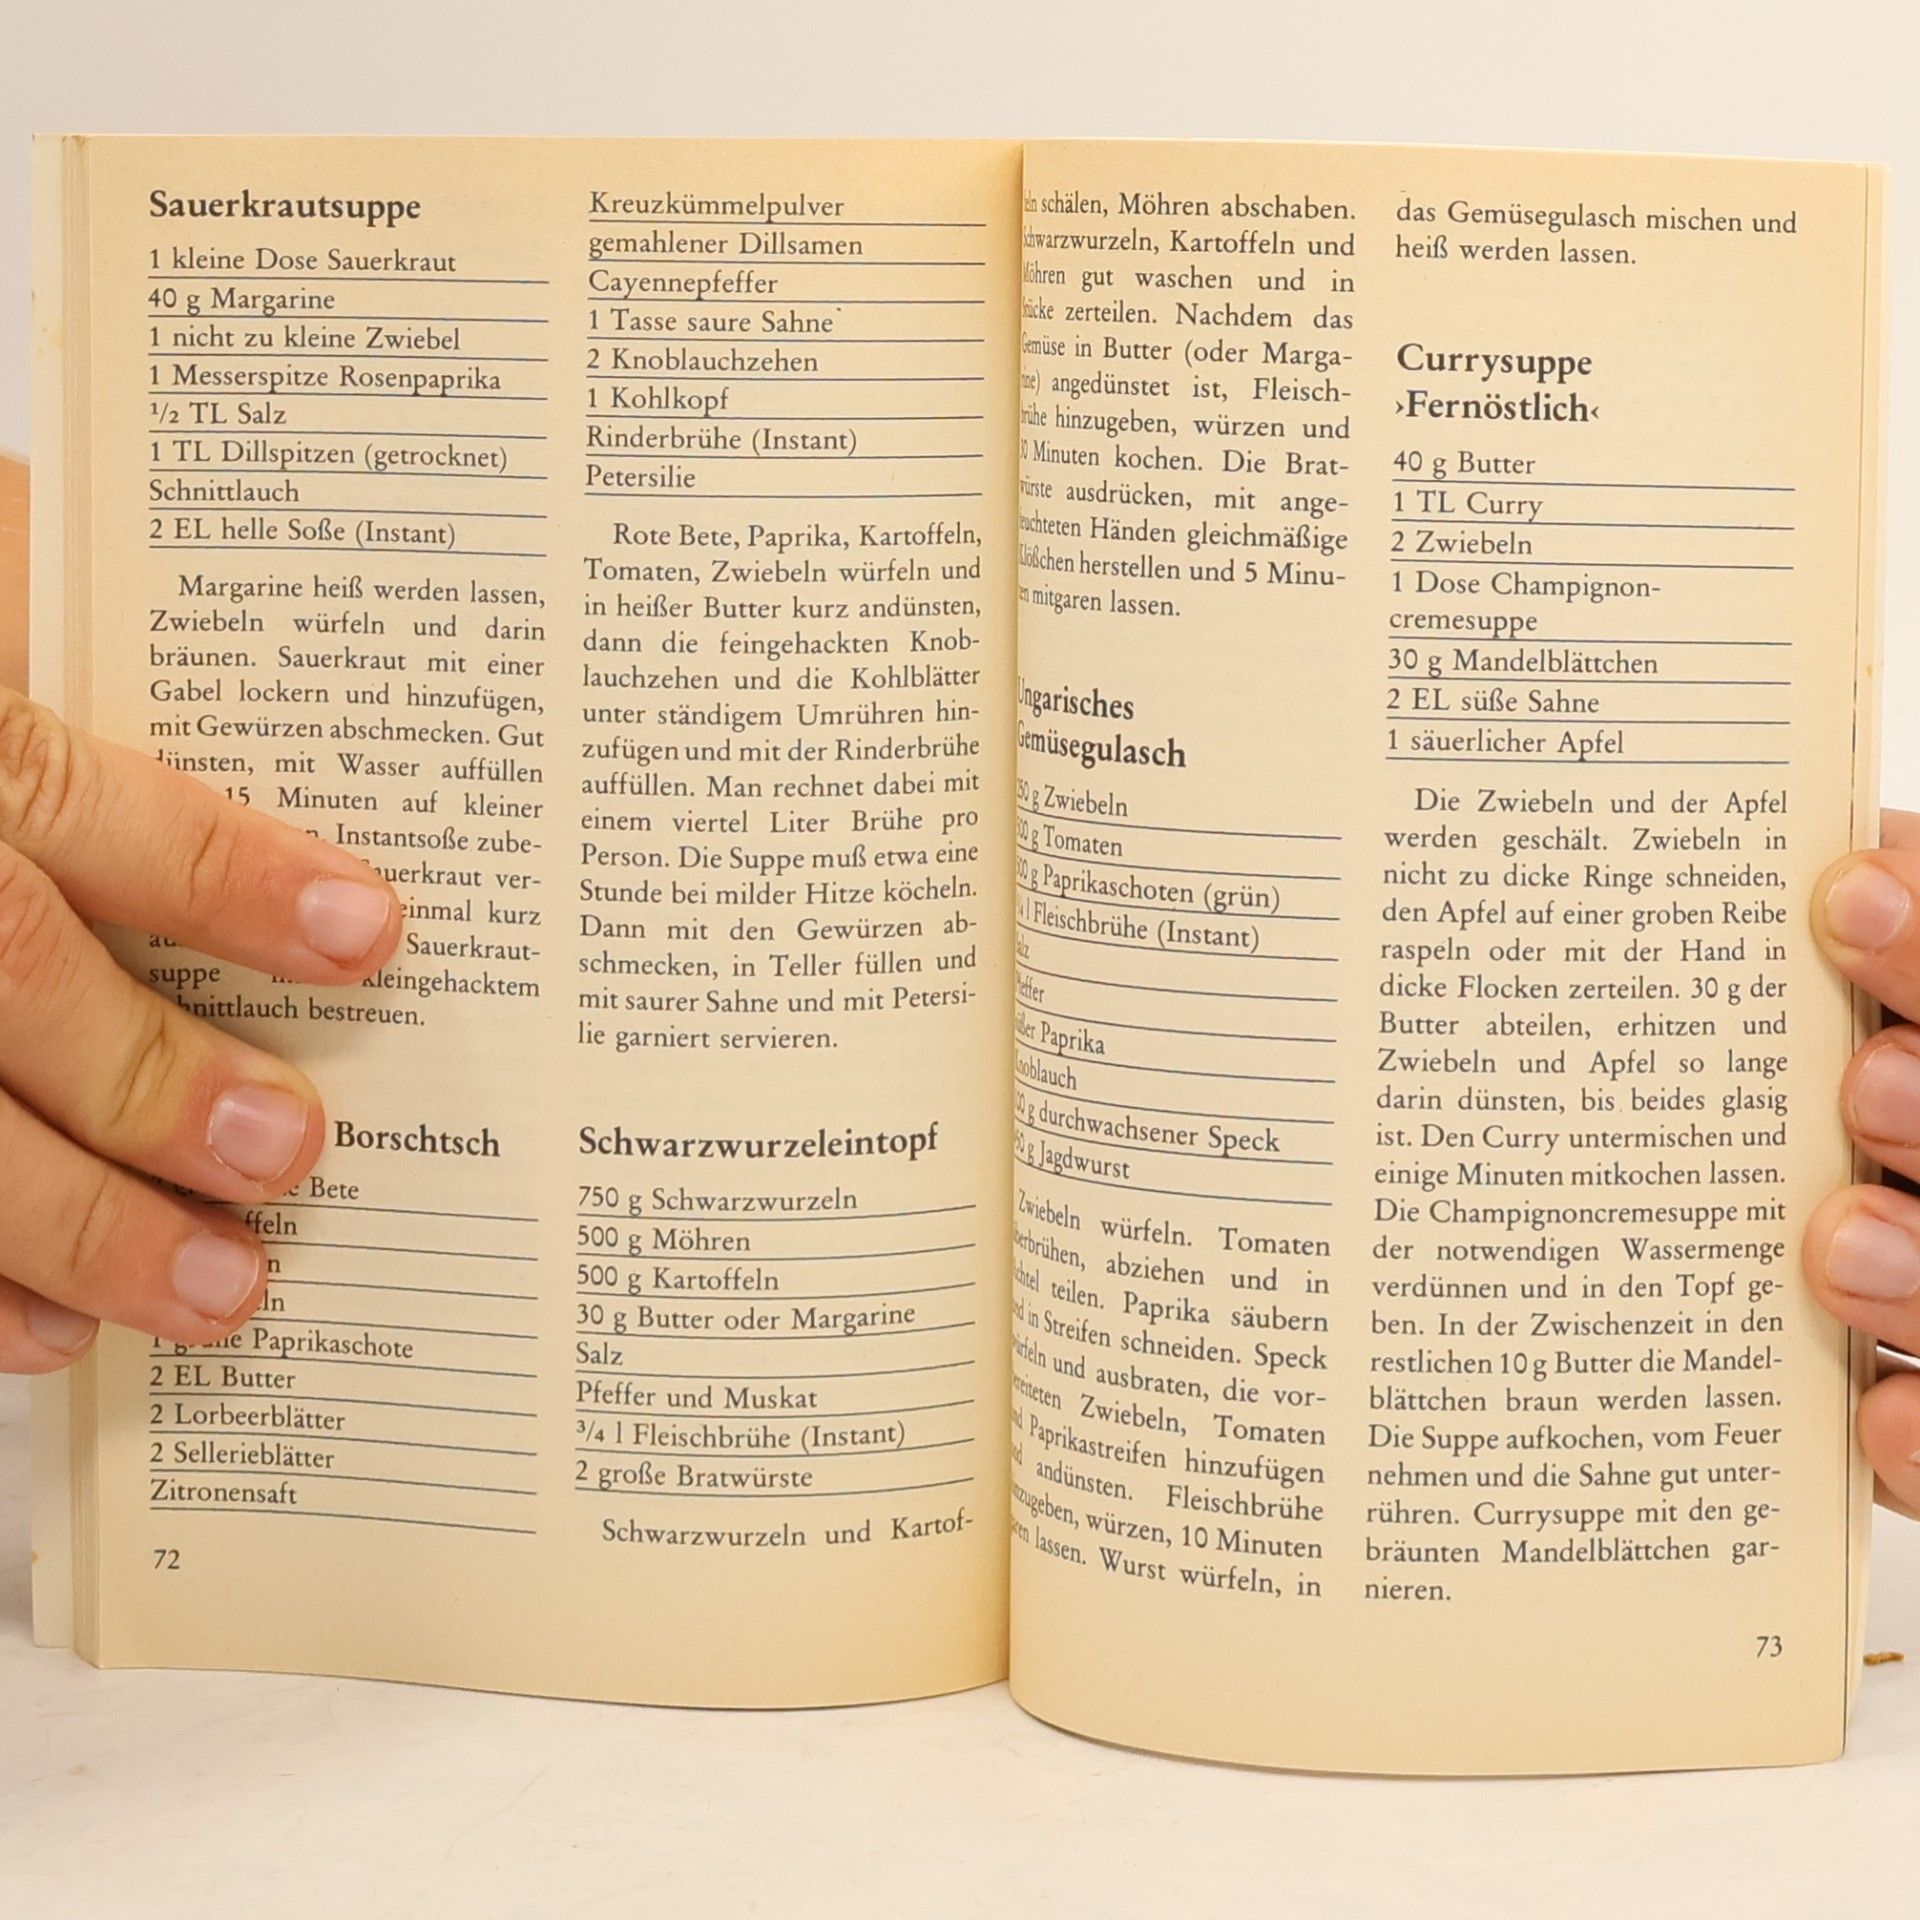 Sauerkrautsuppe
1 kleine Dose Sauerkraut
40 g Margarine
1 nicht zu kleine Zwiebel
1 Messerspitze Rosenpaprika
1/2 TL Salz
1 TL Dillspitzen (getrocknet)
Schnittlauch
2 EL helle Soße (Instant)
Margarine heiß werden lassen,
Zwiebeln würfeln und darin
bräunen. Sauerkraut mit einer
Gabel lockern und hinzufügen,
mit Gewürzen abschmecken. Gut
dünsten, mit Wasser auffüllen
15 Minuten auf kleiner
Instantsoße zube-
Sauerkraut ver-
einmal kurz
Sauerkraut-
suppe kleingehacktem
Schnittlauch bestreuen.
Borschtsch
Bete
1 grüne Paprikaschote
2 EL Butter
2 Lorbeerblätter
2 Sellerieblätter
Zitronensaft
72
Kreuzkümmelpulver
gemahlener Dillsamen
Cayennepfeffer
1 Tasse saure Sahne
2 Knoblauchzehen
1 Kohlkopf
Rinderbrühe (Instant)
Petersilie
Rote Bete, Paprika, Kartoffeln,
Tomaten, Zwiebeln würfeln und
in heißer Butter kurz andünsten,
dann die feingehackten Knob-
lauchzehen und die Kohlblätter
unter ständigem Umrühren hin-
zufügen und mit der Rinderbrühe
auffüllen. Man rechnet dabei mit
einem viertel Liter Brühe pro
Person. Die Suppe muß etwa eine
Stunde bei milder Hitze köcheln.
Dann mit den Gewürzen ab-
schmecken, in Teller füllen und
mit saurer Sahne und mit Petersi-
lie garniert servieren.
Schwarzwurzeleintopf
750 g Schwarzwurzeln
500 g Möhren
500 g Kartoffeln
30 g Butter oder Margarine
Salz
Pfeffer und Muskat
3/4 l Fleischbrühe (Instant)
2 große Bratwürste
Schwarzwurzeln und Kartof-
feln schälen, Möhren abschaben.
Schwarzwurzeln, Kartoffeln und
Möhren gut waschen und in
Stücke zerteilen. Nachdem das
Gemüse in Butter (oder Marga-
rine) angedünstet ist, Fleisch-
brühe hinzugeben, würzen und
Minuten kochen. Die Brat-
würste ausdrücken, mit ange-
feuchteten Händen gleichmäßige
Klößchen herstellen und 5 Minu-
ten mitgaren lassen.
Ungarisches
Gemüsegulasch
g Zwiebeln
g Tomaten
g Paprikaschoten (grün)
l Fleischbrühe (Instant)
Salz
Pfeffer
süßer Paprika
Knoblauch
g durchwachsener Speck
g Jagdwurst
Zwiebeln würfeln. Tomaten
überbrühen, abziehen und in
Achtel teilen. Paprika säubern
und in Streifen schneiden. Speck
würfeln und ausbraten, die vor-
bereiteten Zwiebeln, Tomaten
und Paprikastreifen hinzufügen
und andünsten. Fleischbrühe
hinzugeben, würzen, 10 Minuten
garen lassen. Wurst würfeln, in
das Gemüsegulasch mischen und
heiß werden lassen.
Currysuppe
›Fernöstlich‹
40 g Butter
1 TL Curry
2 Zwiebeln
1 Dose Champignon-
cremesuppe
30 g Mandelblättchen
2 EL süße Sahne
1 säuerlicher Apfel
Die Zwiebeln und der Apfel
werden geschält. Zwiebeln in
nicht zu dicke Ringe schneiden,
den Apfel auf einer groben Reibe
raspeln oder mit der Hand in
dicke Flocken zerteilen. 30 g der
Butter abteilen, erhitzen und
Zwiebeln und Apfel so lange
darin dünsten, bis beides glasig
ist. Den Curry untermischen und
einige Minuten mitkochen lassen.
Die Champignoncremesuppe mit
der notwendigen Wassermenge
verdünnen und in den Topf ge-
ben. In der Zwischenzeit in den
restlichen 10 g Butter die Mandel-
blättchen braun werden lassen.
Die Suppe aufkochen, vom Feuer
nehmen und die Sahne gut unter-
rühren. Currysuppe mit den ge-
bräunten Mandelblättchen gar-
nieren.
73